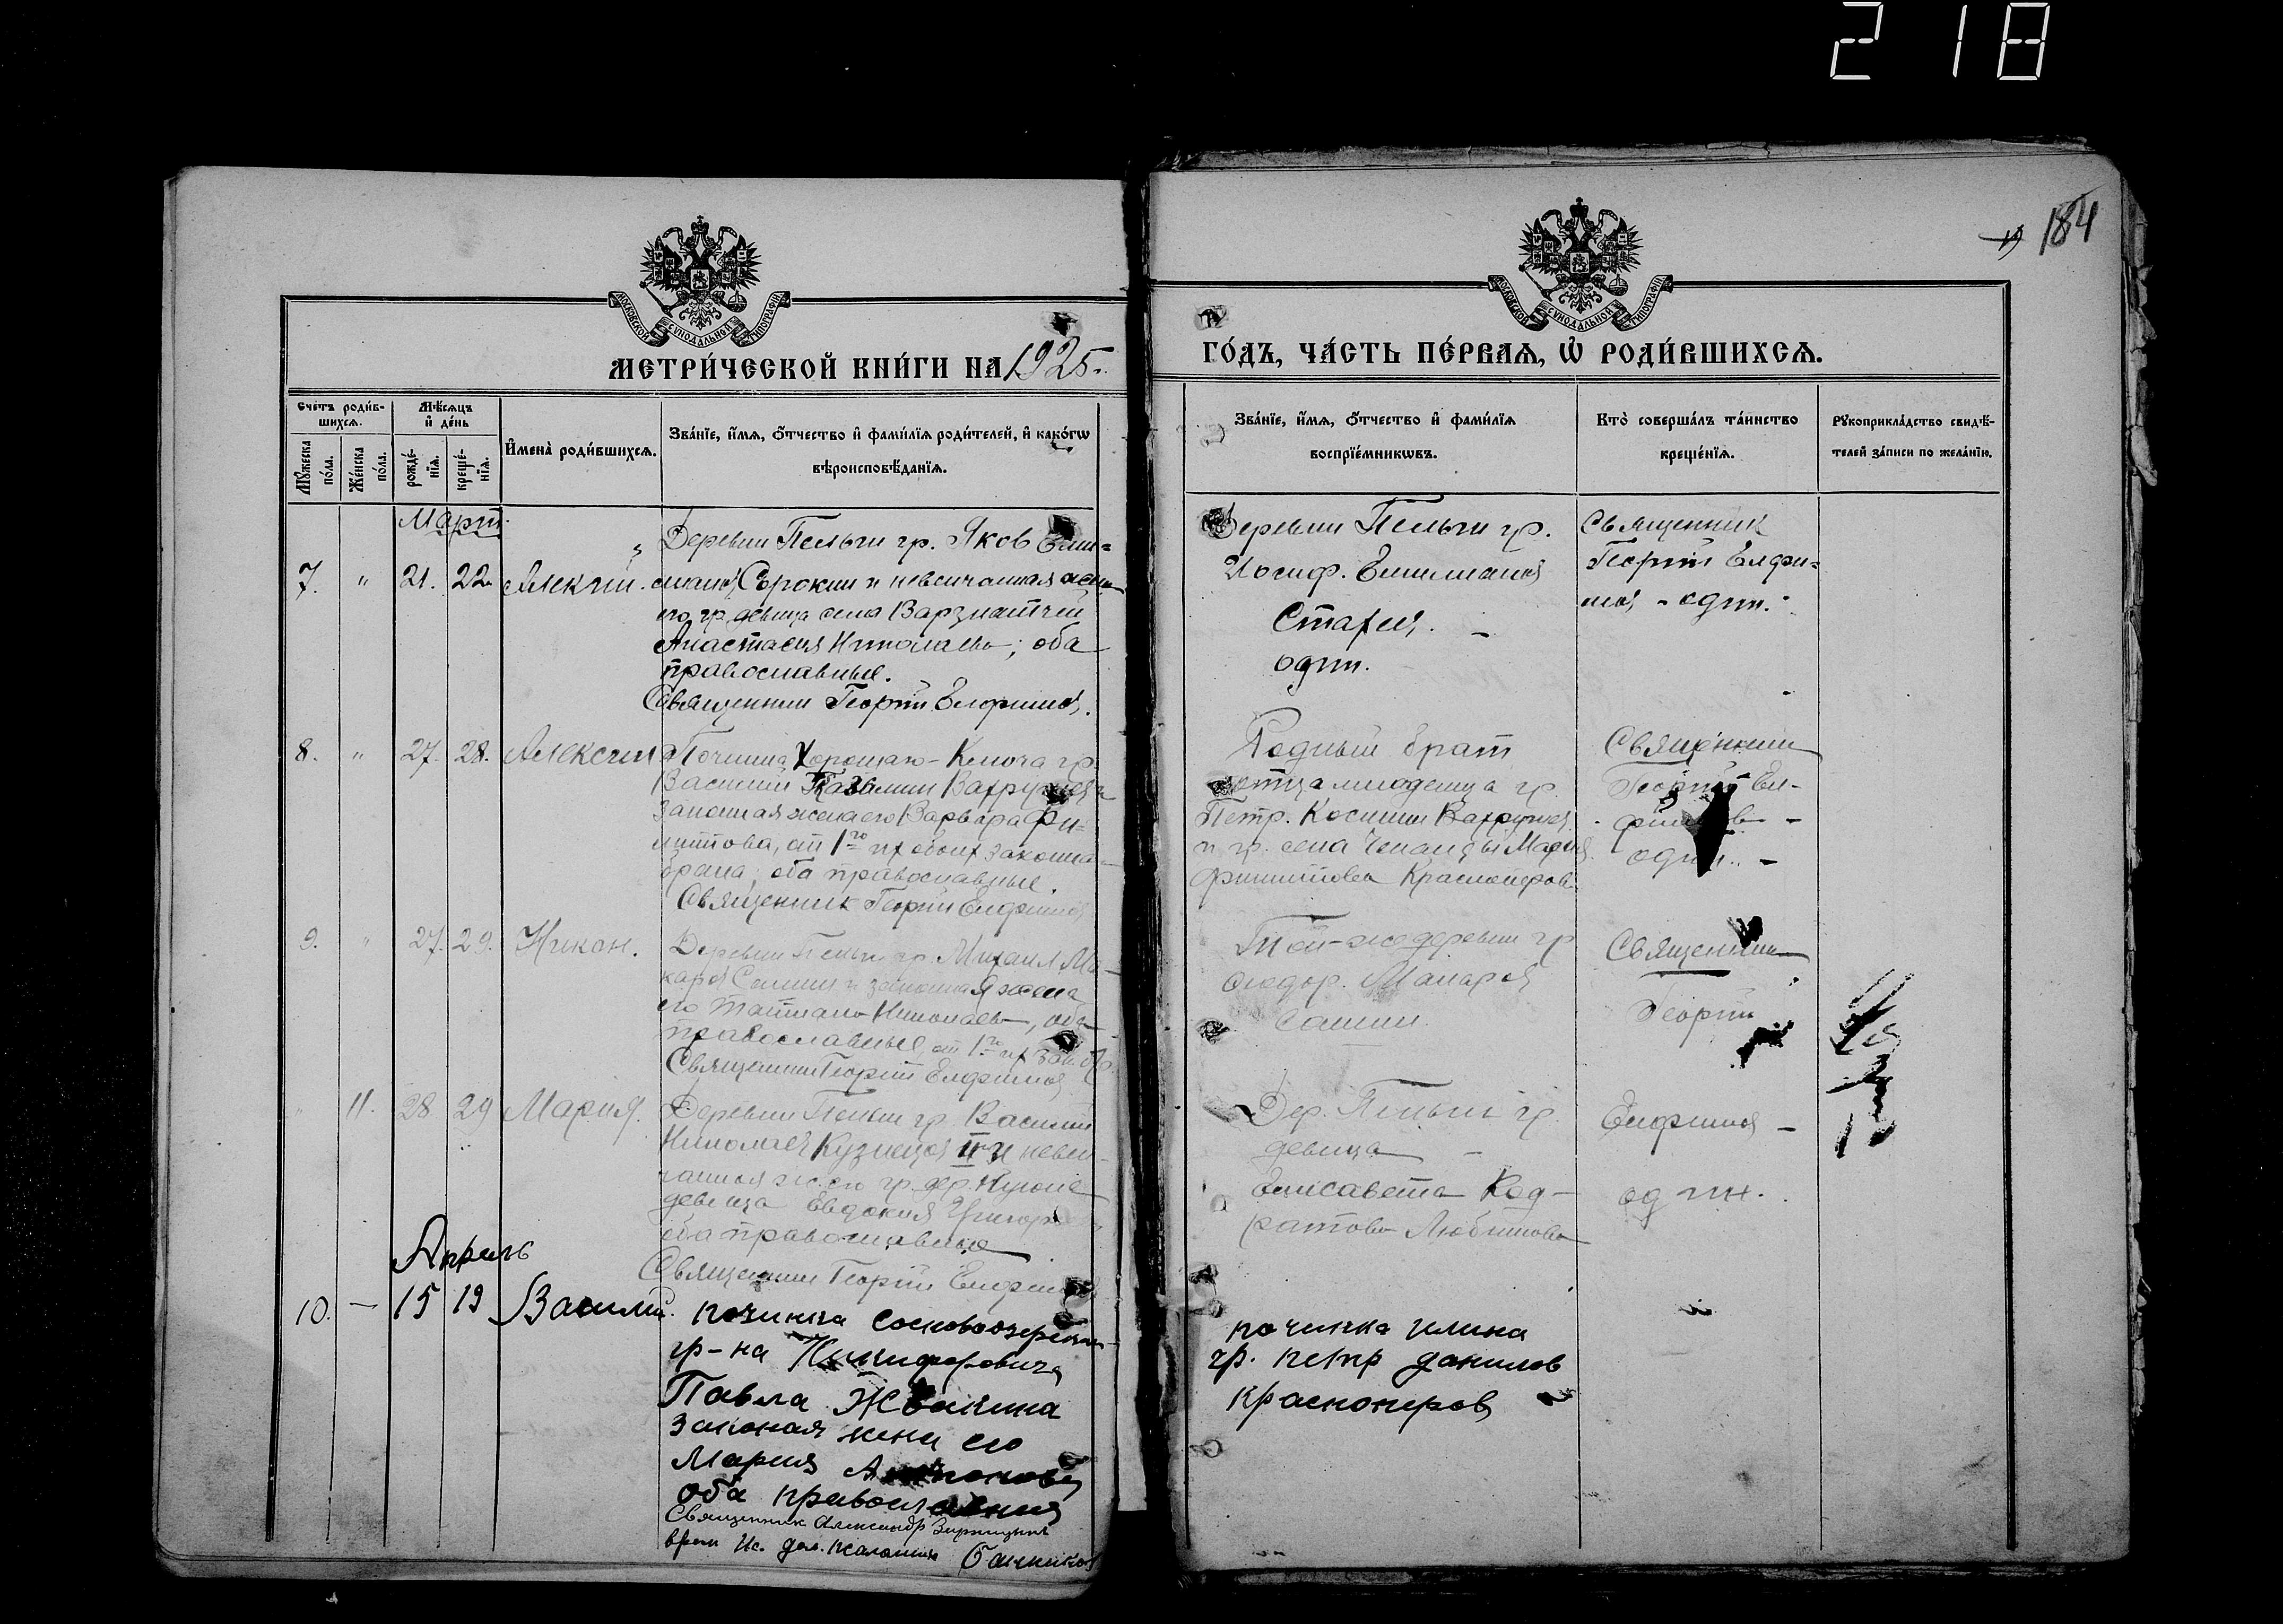 218
184
МОСКОВСКОЙ СУНОДАЛЬНОЙ ТИПОГРАФІИ
МОСКОВСКОЙ СУНОДАЛЬНОЙ ТИПОГРАФІИ
МЕТРИ́ЧЕСКОЙ КНИ́ГИ НА 1925.
ГО́ДЪ, ЧА́СТЬ ПЕ́РВАѦ, Ѡ҆ РОДИ́ВШИХСѦ.
Сче́тъ роди́в-
шихсѧ.
Мꙋжеска по́ла.
Же́нска по́ла.
Мѣ́сѧцъ и҆ де́нь
рожде́-нїѧ.
креще́-нїѧ.
И҆мена̀ роди́вшихсѧ.
Зва́нїе, и҆́мѧ, ѻ҆́тчество и҆ фами́лїѧ роди́телей, и҆ како́гѡ
вѣроисповѣ́данїѧ.
Зва́нїе, и҆́мѧ, ѻ҆́тчество и҆ фами́лїѧ
воспрїе́мникѡвъ.
Кто̀ соверша́лъ та́инство
креще́нїѧ.
Рꙋкоприкла́дство свидѣ́-
телей за́писи по жела́нїю.
Март.
7. " 21. 22. Алексий.
Деревни Пельги гр. Яков Емел=
Сорокин и невенчанная жена
его гр. девица села Варзиятчей
Анастасия Николаева; оба
православные.
Священник Георгий Елфимов.
Деревни Пельги гр.
Иосиф. Емелианов
один.
Священник
Георгий Елфи=
мов - один.
8. " 27. 28. Алексий
Починка Хорошаго-Ключа гр.
Василий Вахрушев и
законная жена его Варвара Фи=
липпова, от 1го их обоих законна
брака; оба православные.
Священник Георгий Елфимов
Родный брат
отца младенца гр.
Петр. Косьмин Вахрушев.
и гр. села Мария
Филиппова Красноперова.
Священник
Георгий Ел-
фимов -
один. -
9. " 27. 29. Никон.
Деревни Пельги гр. Михаил Ма-
каров Санин и законная жена
его Татиана Николаева, оба
православные, от 1го их зак. бр.
Священник Георгий Елфимов
Той-же деревни гр
Феодор. Макаров
Санин.
Священник
Георгий
" 11. 28 29 Мария.
Деревни Пельги гр. Василий
Николаев Кузнецов II й и невен-
чанная ж. его гр. дер.
девица Евдокия Григорьев
оба православные
Священник Георгий Елфимов
Дер. Пельги гр.
девица -
Елисавета Код-
ратова Любимова
Елфимов -
один.
Апрель
10. — 15 19 Василий.
починка
гр-на Никифоровича
Павла
законая жена его
Мария
оба православния
Священник Александр
починка Илина
гр. Петр Данилов
Красноперов